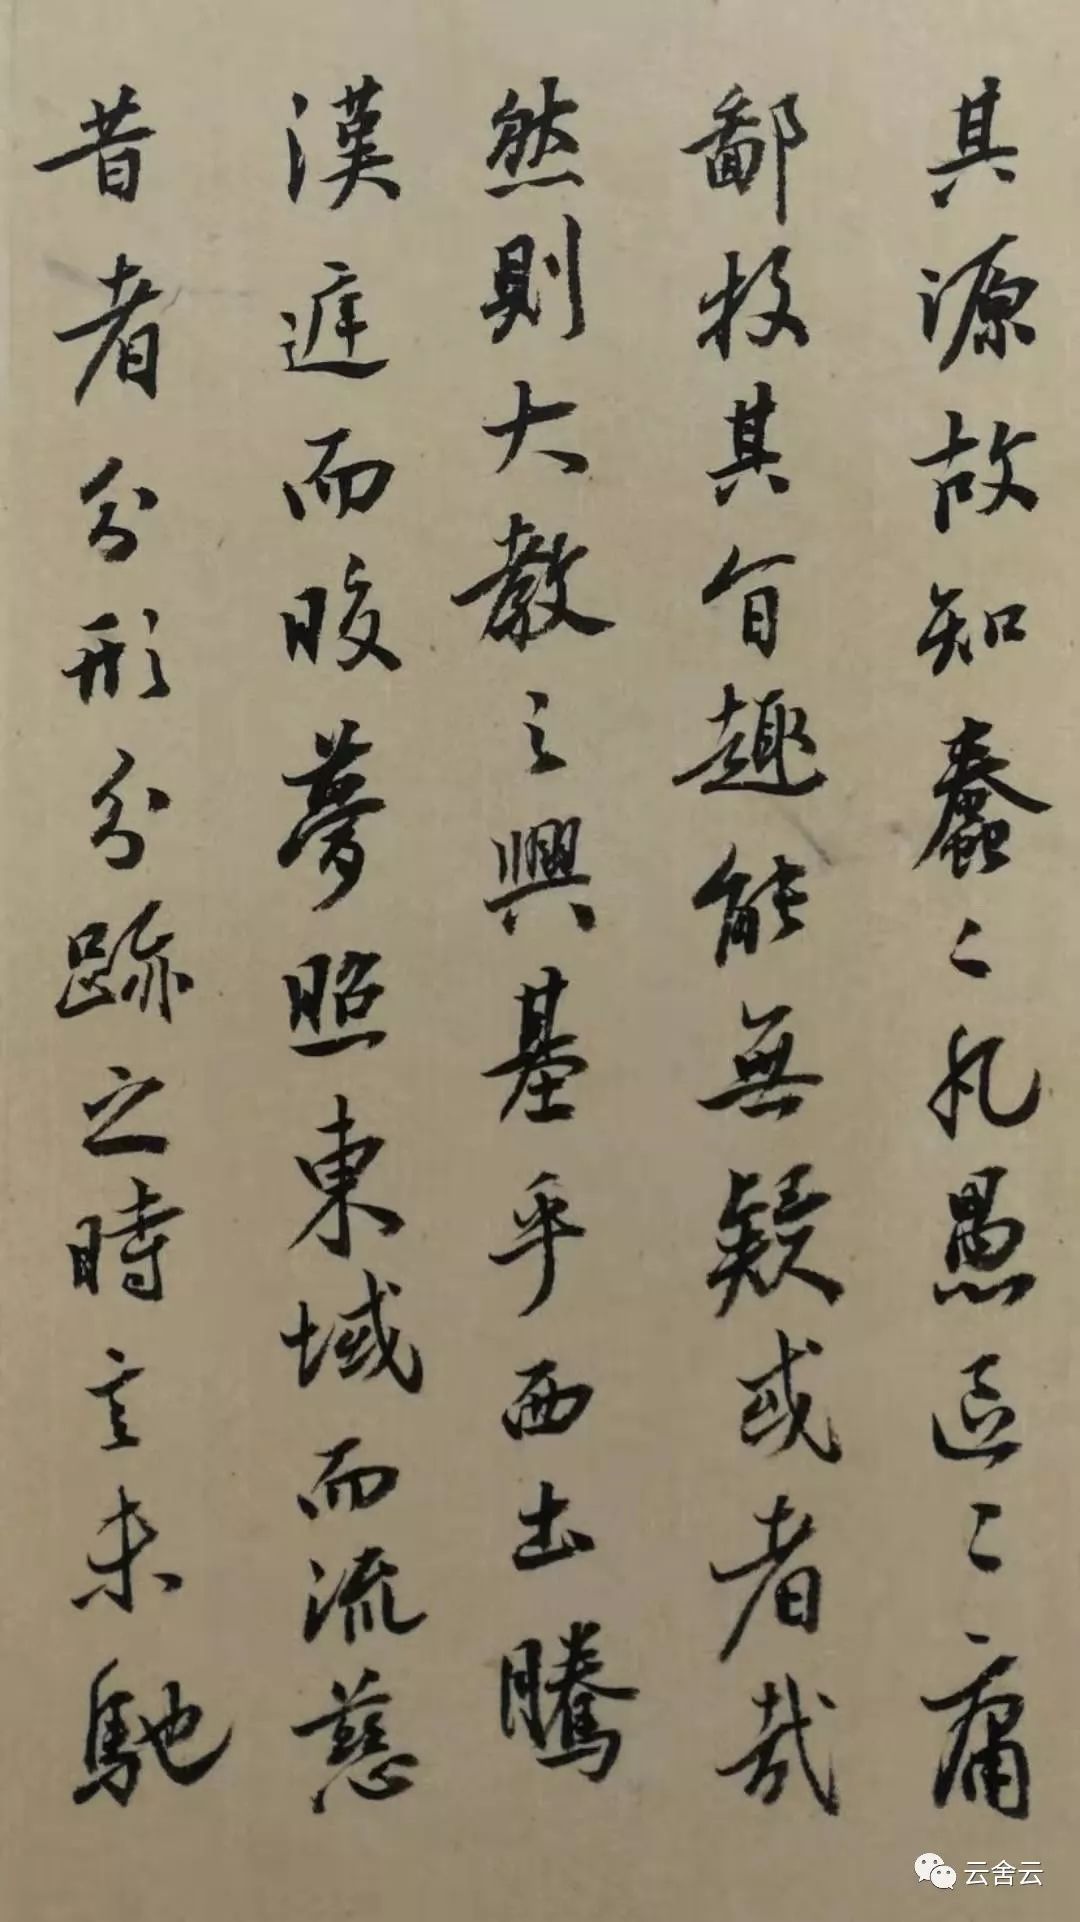 其源故知蠢〻凡愚區〻庸
鄙投其旨趣能無疑或者哉
然則大教之興基乎西土騰
漢遅而晈夢照東域而流慈
昔者分形分跡之時言未馳
云舍云